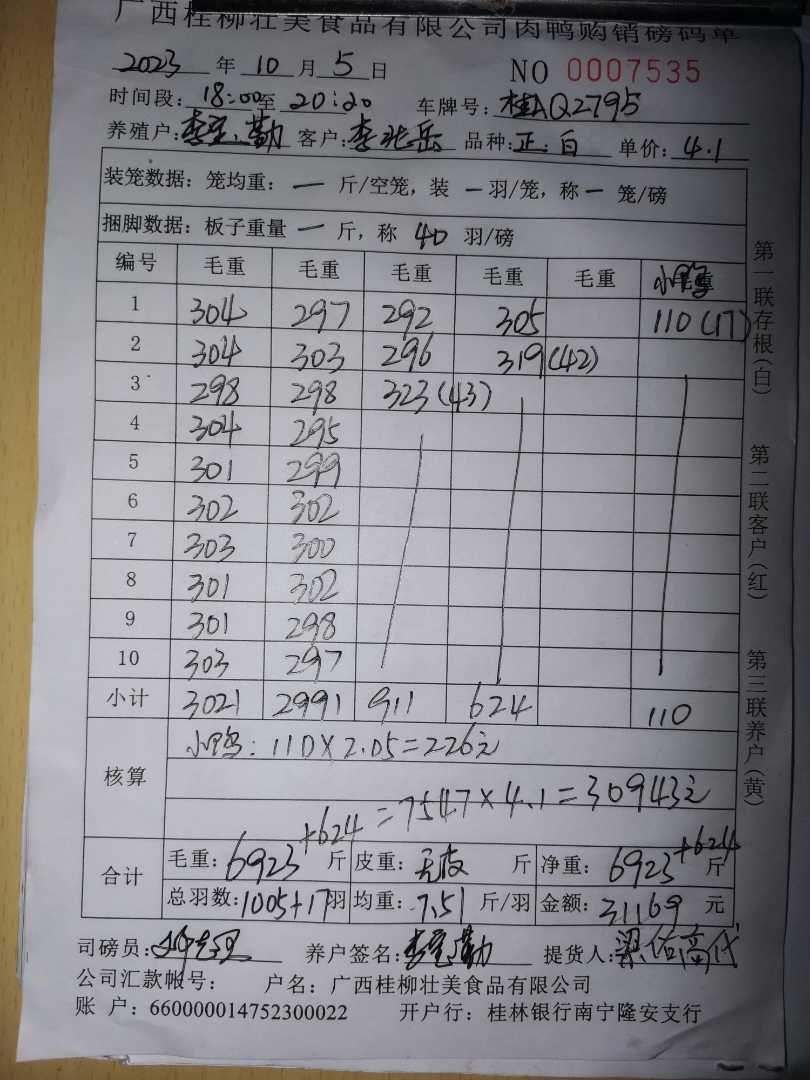 广西桂柳壮美食品有限公司肉鸭购销磅码单
2023 年 10 月 5 日 NO 0007535
时间段: 18:00至 20:20 车牌号: 桂AQ2795
养殖户: 李宝勤 客户: 李兆岳 品种: 正.白 单价: 4.1
装笼数据: 笼均重: 一 斤/空笼, 装 一 羽/笼, 称 一 笼/磅
捆脚数据: 板子重量 一 斤, 称 40 羽/磅
编号 毛重 毛重 毛重 毛重 毛重 小鸭
1 304 297 292 305 110(17)
2 304 303 296 319(42)
3 298 298 323(43)
4 304 295
5 301 299
6 302 302
7 303 300
8 301 302
9 301 298
10 303 297
小计 3021 2991 911 624 110
核算 小鸭: 110×2.05=226元
+624 =7547×4.1=30943元
合计 毛重: 6923 斤 皮重: 无皮 斤 净重: 6923+624 斤
总羽数: 1005+17羽 均重: 7.51 斤/羽 金额: 31169 元
司磅员: 养户签名: 李宝勤 提货人: 梁佑高代
公司汇款帐号: 户名: 广西桂柳壮美食品有限公司
账 户: 660000014752300022 开户行: 桂林银行南宁隆安支行
第一联存根(白)
第二联客户(红)
第三联养户(黄)